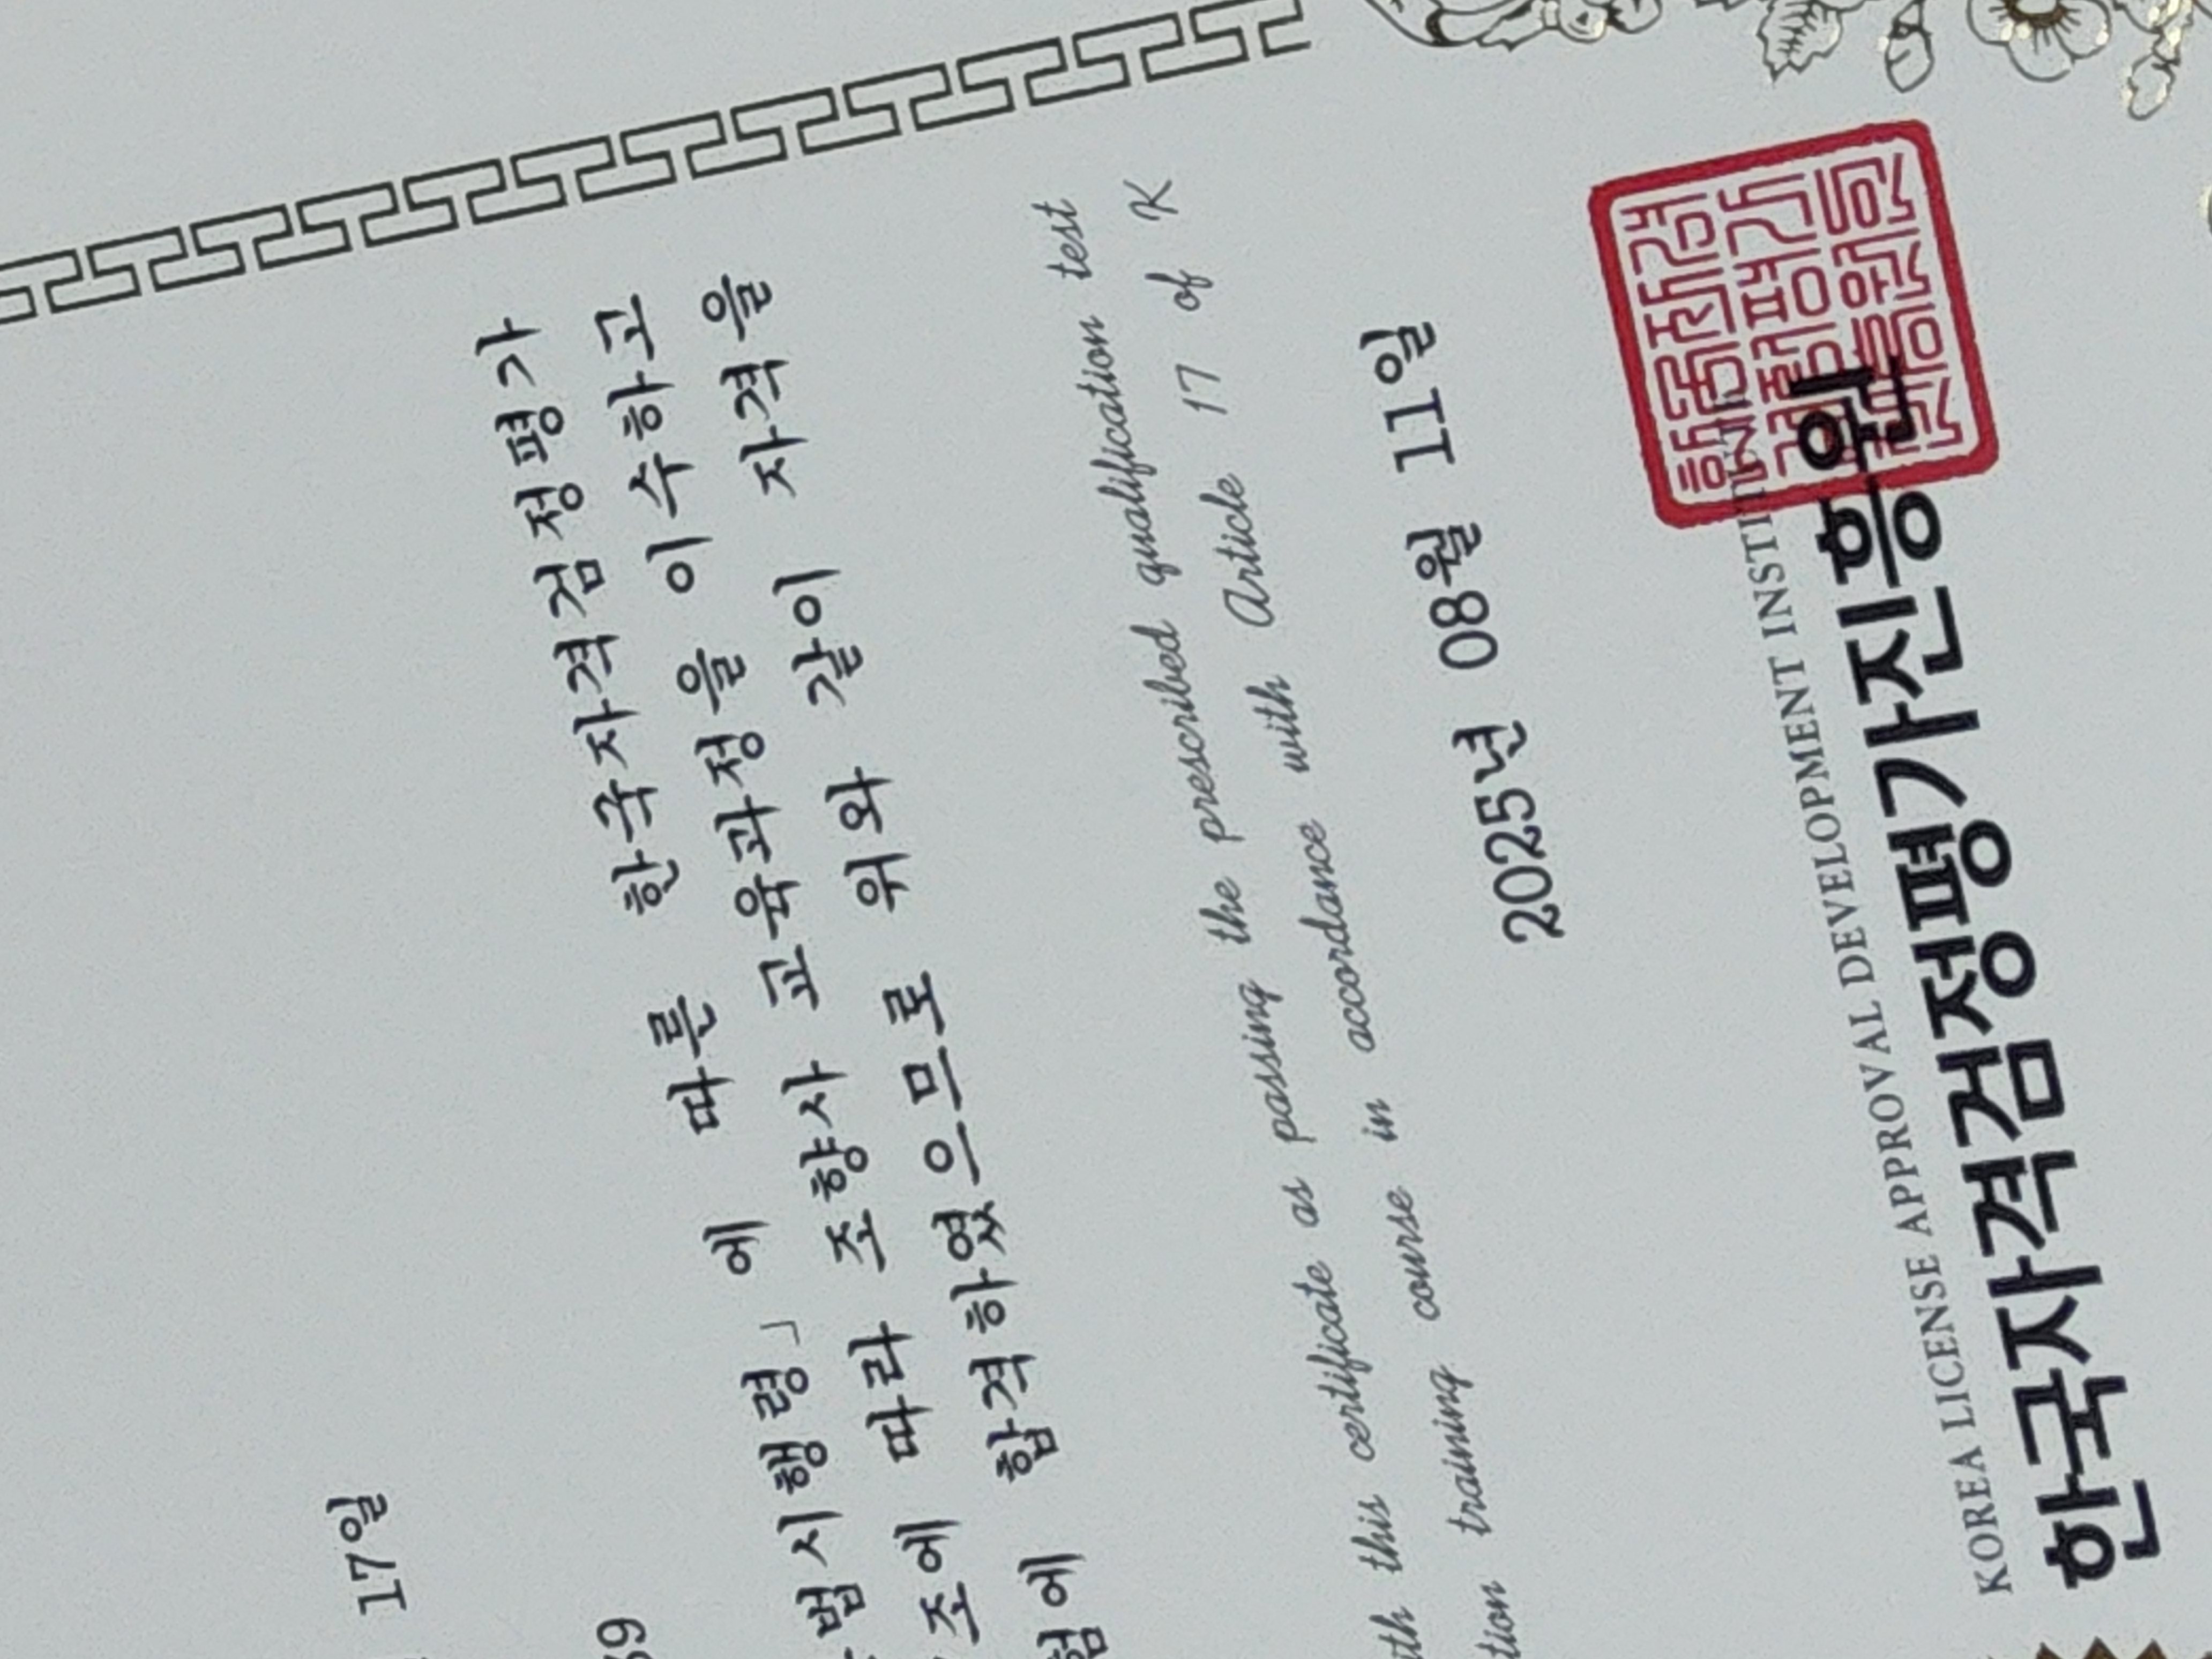 17일
39
법시행령」 에 따른 한국자격검정평가
조에 따라 조향사 교육과정을 이수하고
험에 합격하였으므로 위와 같이 자격을
this certificate as passing the prescribed qualification test
training course in accordance with Article 17 of K
2025년 08월 11일
KOREA LICENSE APPROVAL DEVELOPMENT INSTITUTE
한국자격검정평가진흥원